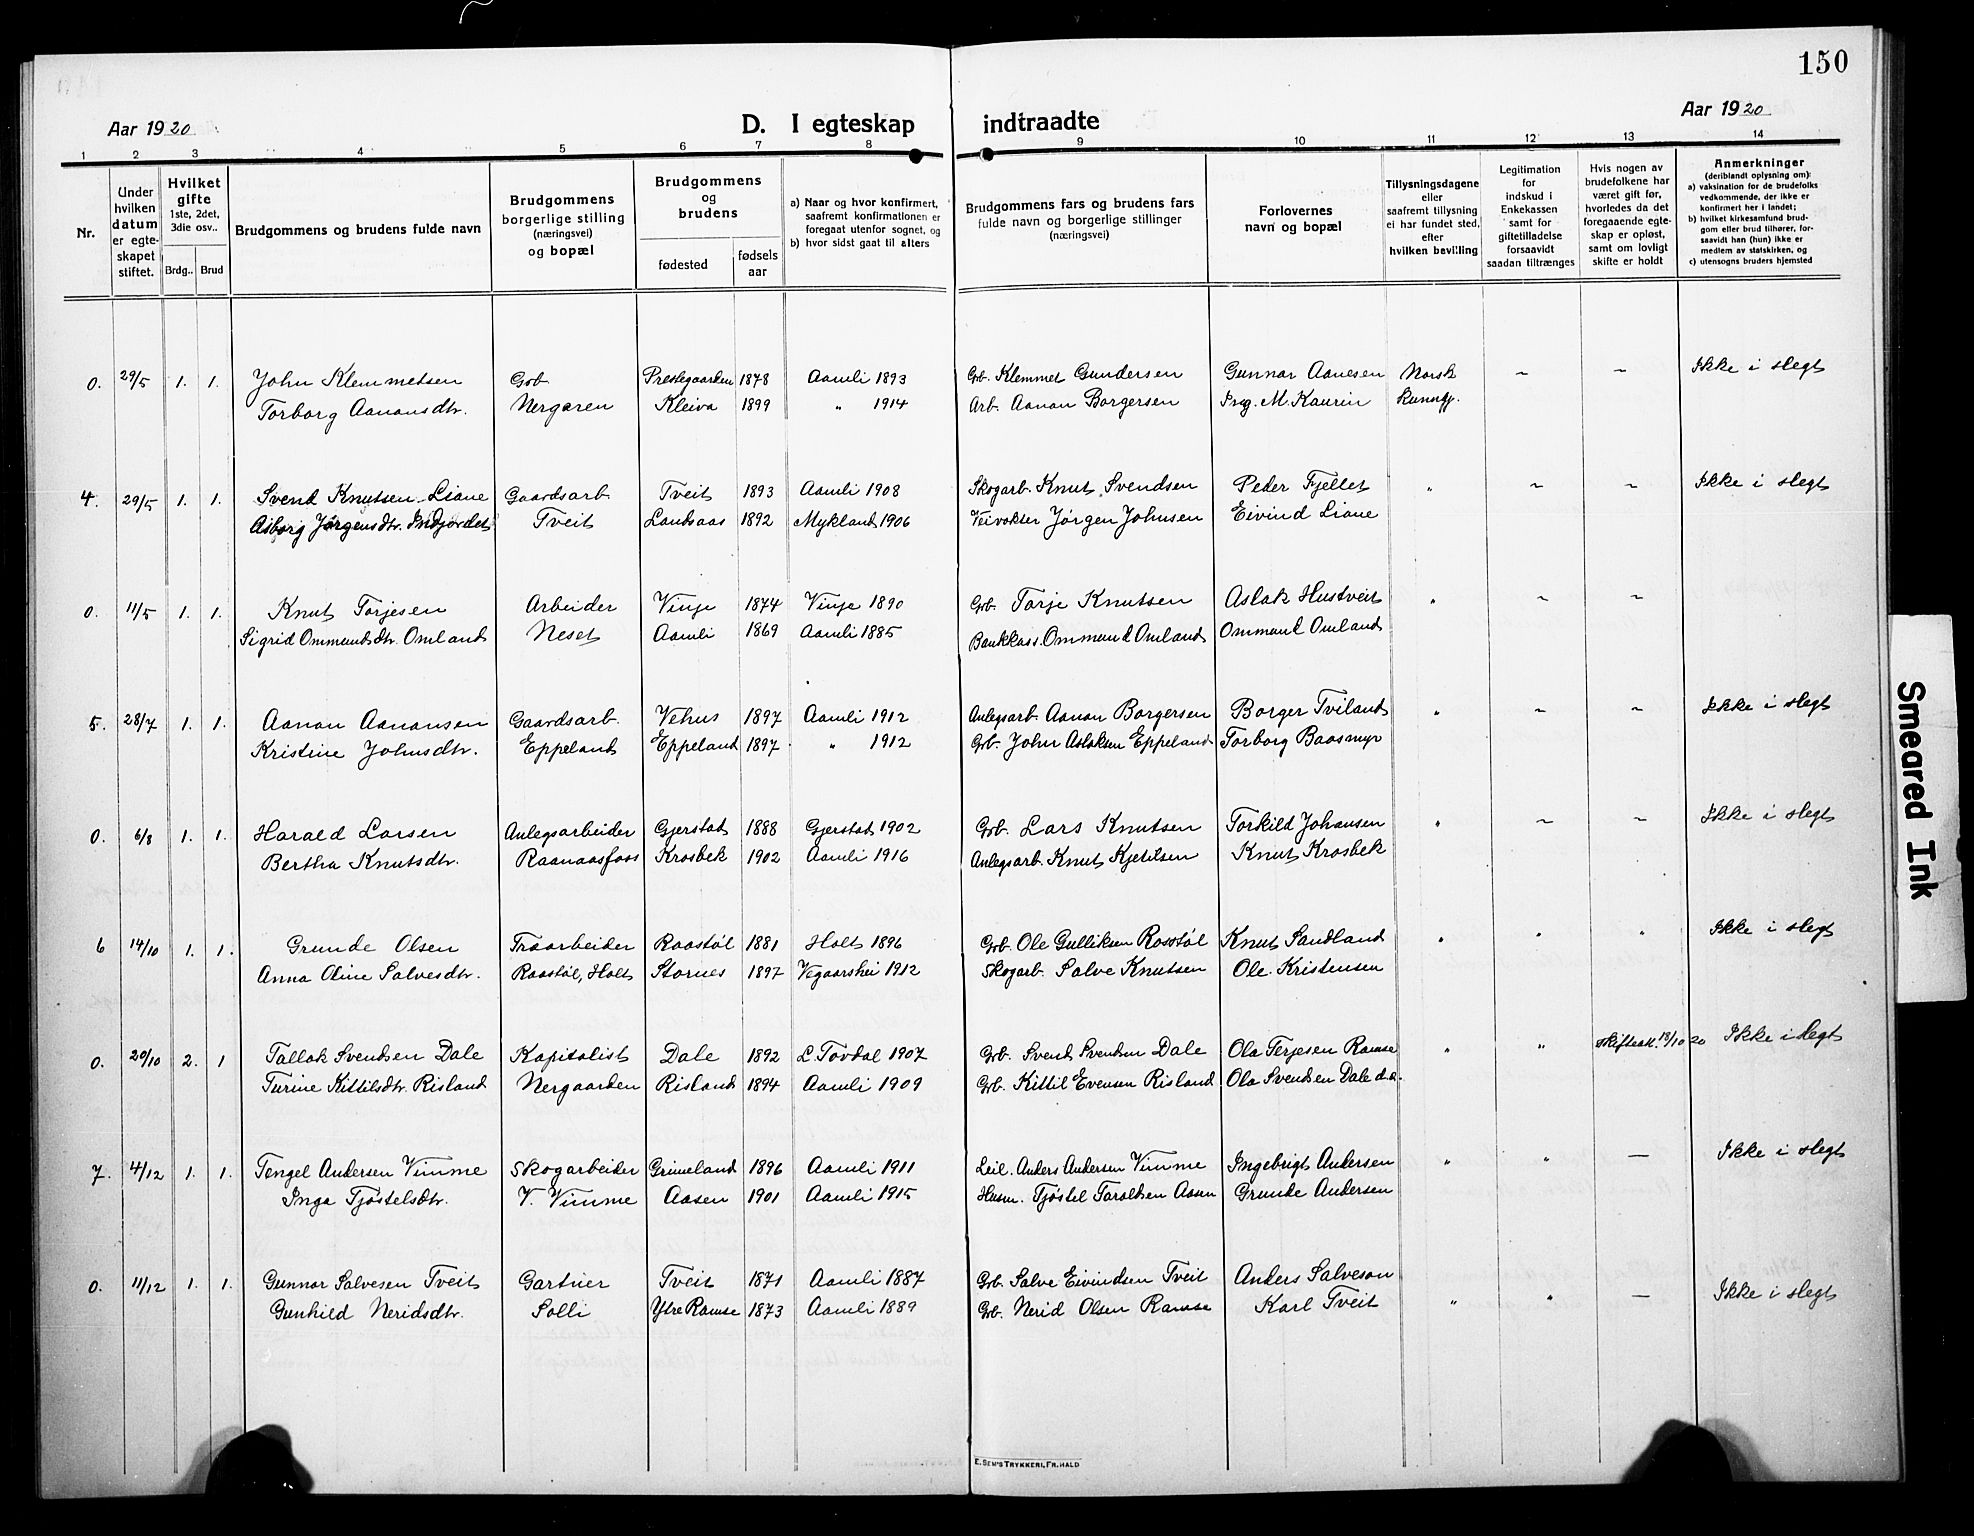 150
Aar 1920
D. I egteskap indtraadte
Aar 1920
1 2 3 4 5 6 7 8 9 10 11 12 13 14
Nr.
Under hvilken datum er egteskapet stiftet.
Hvilket gifte 1ste, 2det, 3die osv..
Brdg.. Brud
Brudgommens og brudens fulde navn
Brudgommens borgerlige stilling (næringsvei) og bopæl
Brudgommens og brudens
fødested
fødsels aar
a) Naar og hvor konfirmert, saafremt konfirmationen er foregaat utenfor sognet, og
b) hvor sidst gaat til alters
Brudgommens fars og brudens fars fulde navn og borgerlige stillinger (næringsvei)
Forlovernes navn og bopæl
Tillysningsdagene eller saafremt tillysning ei har fundet sted, efter hvilken bevilling
Legitimation for indskud i Enkekassen samt for giftetilladelse forsaavidt saadan tiltrænges
Hvis nogen av brudefolkene har været gift før, hvorledes da det foregaaende egteskap er opløst, samt om lovligt skifte er holdt
Anmerkninger (deriblandt oplysning om):
a) vaksination for de brudefolks vedkommende, der ikke er konfirmert her i landet;
b) hvilket kirkesamfund brudgom eller brud tilhører, forsaavidt han (hun) ikke er medlem av statskirken, og
c) utensogns bruders hjemsted
0. 29/5 1. 1. John Klemmetsen Grb. Prestegaarden 1878 Aamli 1893 Grb. Klemmet Gundersen Gunnar Aanesen Norsk ~ ~ Ikke i slegt
Torborg Aanonsdtr. Nergaren Kleiva 1899 " 1914 Arb. Aanon Borgersen Ing. M. Kaurin
4. 29/5 1. 1. Svend Knutsen Liane Gaardsarb. Tveit 1893 Aamli 1908 Skogarb. Knut Svendsen Peder Fjellet " ~ ~ Ikke i slegt
Asborg Jørgensdtr. Indjordet Tveit Landsaas 1892 Mykland 1906 Veivokter Jørgen Johnsen Eivind Liane
0. 11/5 1. 1. Knut Torjesen Arbeider Vinje 1874 Vinje 1890 Grb. Torje Knutsen Aslak Hustveit " ~ ~
Sigrid Ommundsdtr. Omland Neset Aamli 1869 Aamli 1885 Bankkass. Ommund Omland Ommund Omland
5. 28/7 1. 1. Aanon Aanonsen Gaardsarb. Vehus 1897 Aamli 1912 Anlegsarb. Aanon Borgersen Borger Tviland " ~ ~ Ikke i slegt
Kristine Johnsdtr. Eppeland Eppeland 1897 " 1912 Grb. John Aslaksen Eppeland Torborg Baasmyr
0. 6/8 1. 1. Harald Larsen Anlegsarbeider Gjerstad 1888 Gjerstad 1902 Grb. Lars Knutsen Torkild Johansen " ~ ~ Ikke i slegt
Bertha Knutsdtr. Raanaasfoss Krosbek 1902 Aamli 1916 Anlegsarb. Knut Kjetilsen Knut Krosbek
6 14/10 1. 1. Grunde Olsen Traarbeider Raastøl 1881 Holt 1896 Grb. Ole Gulliksen Rosstøl Knut Sandland " " " Ikke i slegt
Anna Oline Salvesdtr. Raastøl, Holt Stornes 1897 Vegaarshei 1912 Skogarb. Salve Knutsen Ole Kristensen
0. 20/10 2. 1 Tallak Svendsen Dale Kapitalist Dale 1892 L. Tovdal 1907 Grb. Svend Svendsen Dale Ola Terjesen Ramse " " Skifteatt. 18/10 20 Ikke i slegt
Turine Kittilsdtr. Risland Nergaarden Risland 1894 Aamli 1909 Grb. Kittil Evensen Risland Ola Svendsen Dale d.a.
7. 4/12 1. 1. Tengel Andersen Vimme Skogarbeider Grimeland 1896 Aamli 1911 Leil. Anders Andersen Vimme Ingebrigt Andersen " " — Ikke i slegt
Inga Tjøstelsdtr. V. Vimme Aasen 1901 Aamli 1915 Husm. Tjøstel Taraldsen Aasen Grunde Andersen
0. 11/12 1. 1. Gunnar Salvesen Tveit Gartner Tveit 1871 Aamli 1887 Grb. Salve Eivindsen Tveit Anders Salveson " " — Ikke i slegt
Gunhild Neridsdtr. Solli Ytre Ramse 1873 Aamli 1889 Grb. Nerid Olsen Ramse Karl Tveit
E. SEM'S TRYKKERI, FR.HALD
Smeared Ink